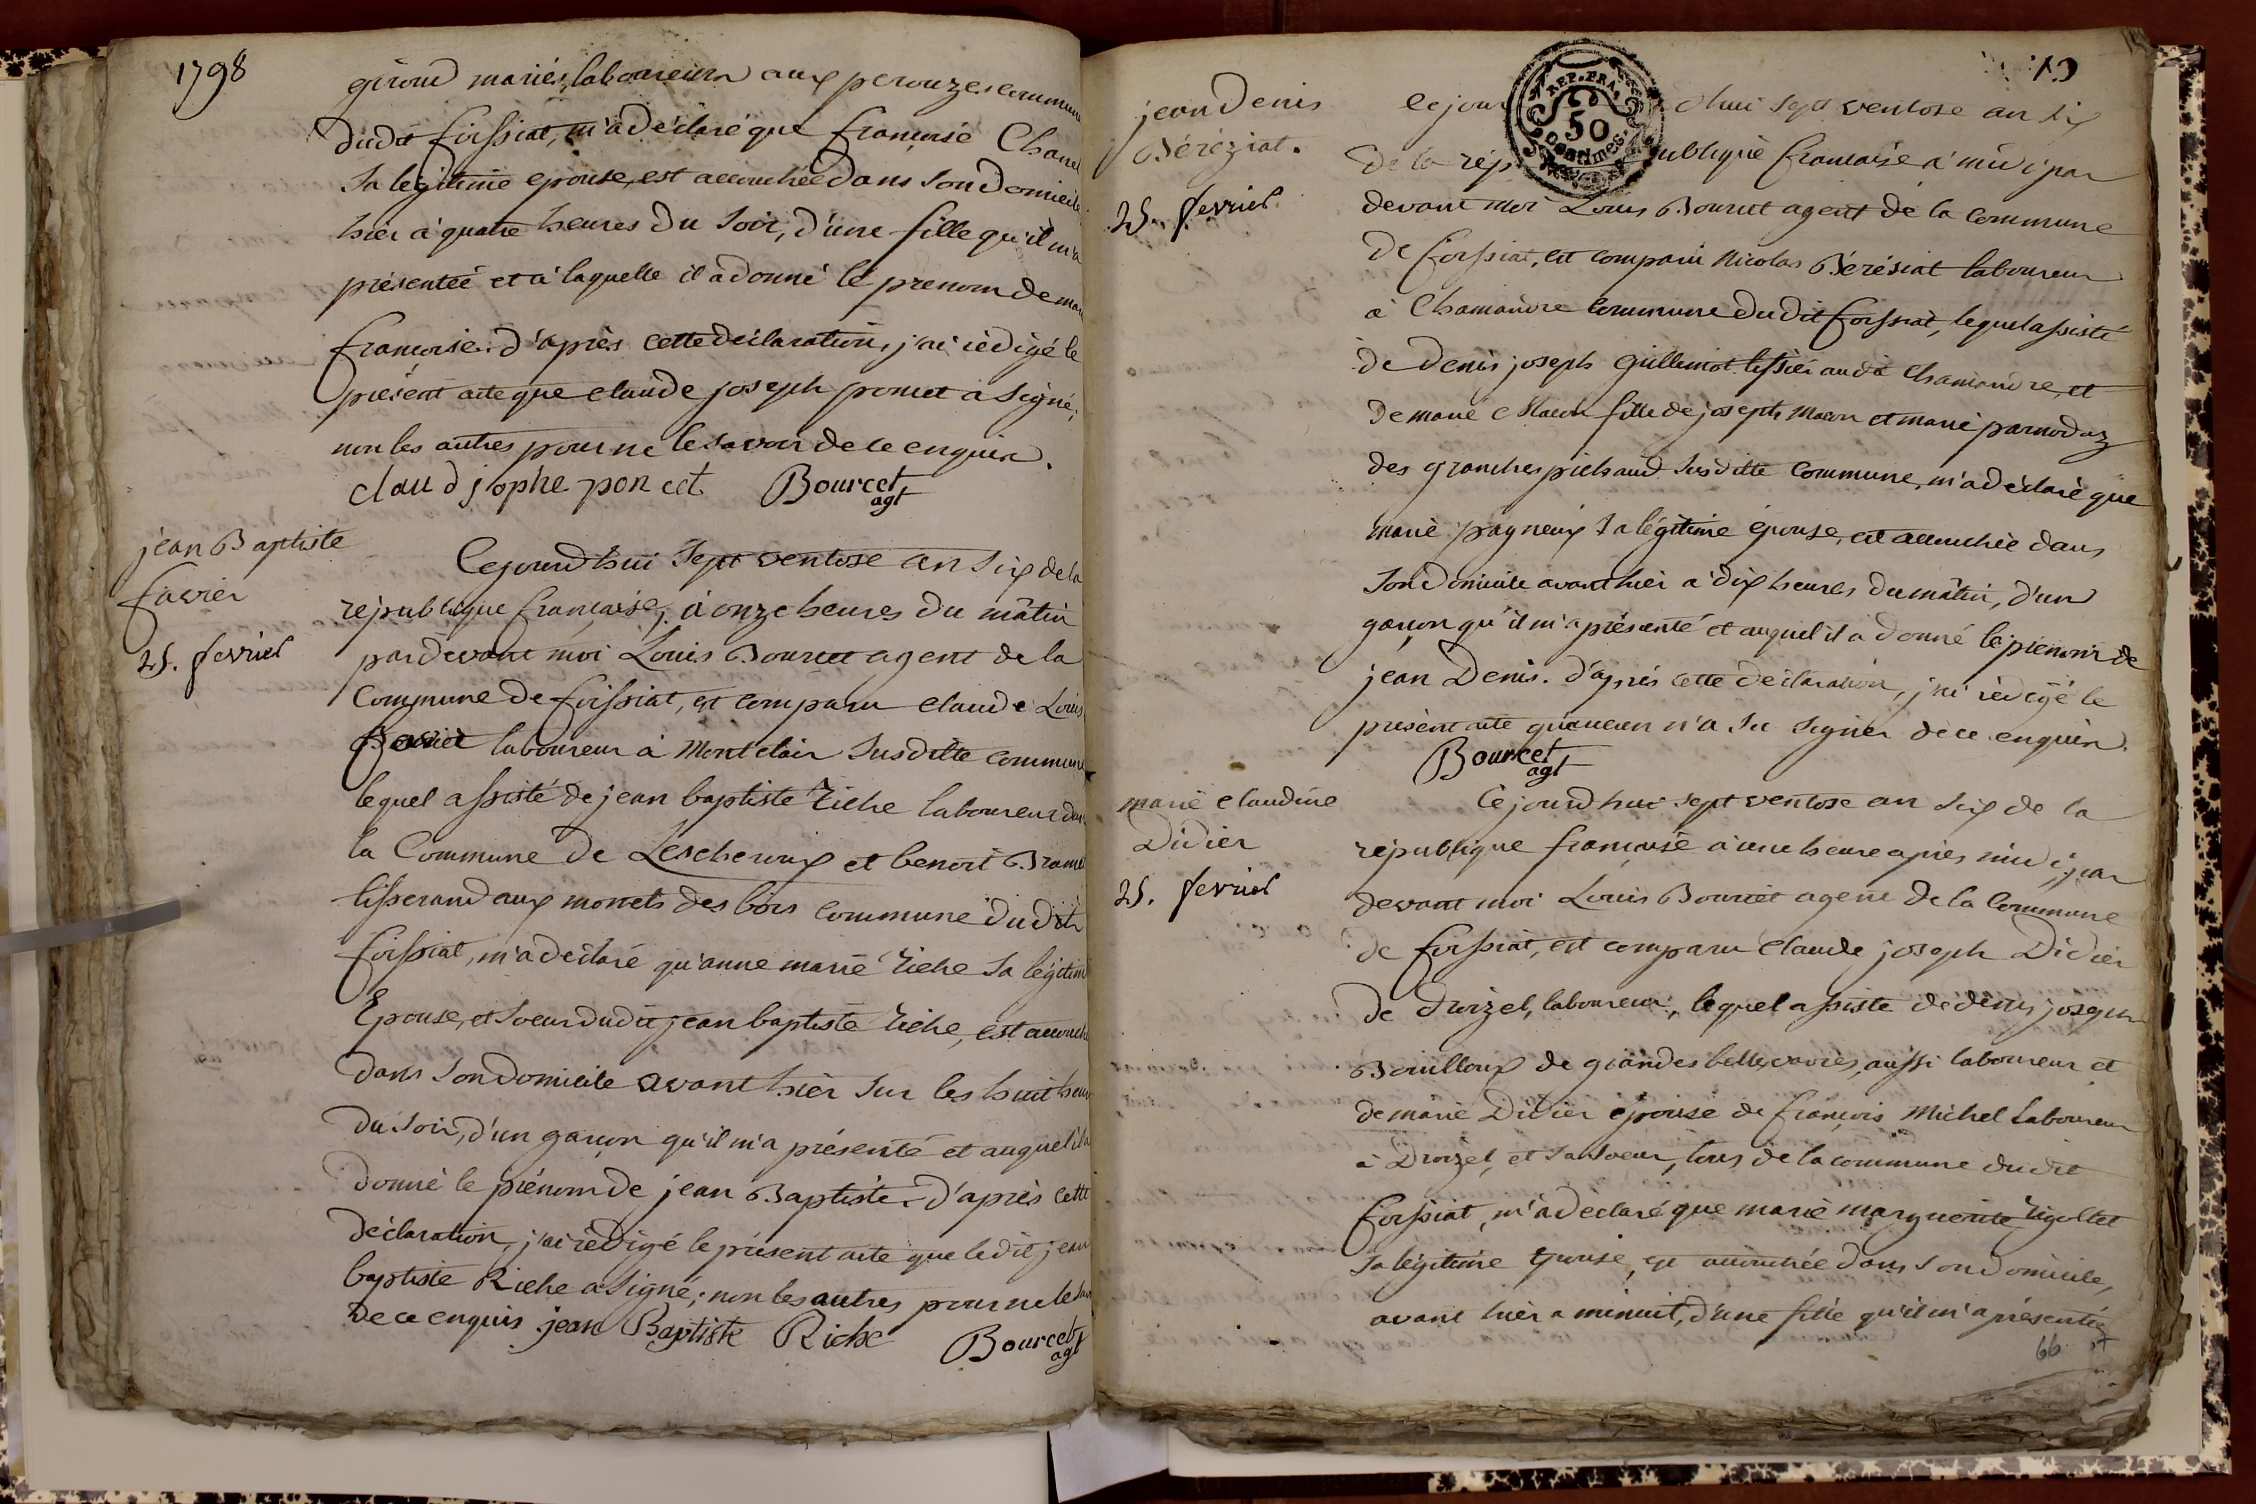 1798
giroud mariés, laboureurs aux perouzes commune
dudit foissiat, m'a déclaré que françoise Chanel
sa légitime epouse, est accouchée dans son domicile
hier à quatre heures du soir, d'une fille qu'il m'a
présentée et à laquelle il a donné le prenom de marie
françoise. d'après cette déclaration, j'ai rédigé le
présent acte que claude joseph poncet a signé;
non les autres pour ne le savoir de ce enquis.
claud josphe pon cet Bourcet
agt
jean Baptiste
favier
25. fevrier
Cejourd'hui sept ventose an six de la
république française, à onze heures du mâtin
pardevant moi Louis Bourcet agent de la
commune de foissiat, est comparu claude Louis
favier laboureur à Montclair susditte commune
lequel assisté de jean baptiste riche laboureur dans
la Commune de Lescheroux et benoit
tisserand aux monets des bois commune dudit
foissiat, m'a déclaré qu'anne marie riche sa légitime
Epouse, et soeur dudit jean baptiste riche, est accouchée
dans son domicile avant hier sur les huit heures
du soir, d'un garçon qu'il m'a présenté et auquel il a
donné le prénom de jean Baptiste. d'après cette
déclaration, j'ai rédigé le présent acte que ledit jean
baptiste Riche a signé; non les autres pour ne le
de ce enquis jean Baptiste Riche Bourcet
agt
10
jean Denis
Béréziat.
25. fevrier
REP. FRA.
50
Centimes.
Cejour d'hui sept ventose an six
de la république francaise à midi par
devant moi Louis Bourcet agent de la commune
de foissiat, est comparu Nicolas Bérésiat laboureur
à Chamandre commune dudit foissiat, lequel assisté
de Denis joseph Guillemot audit Chamandre, et
de marie Macon fille de joseph Macon et marie parnodaz
des granches pichaud susditte commune, m'a déclaré que
marie pagneux sa légitime épouse, est accouchée dans
son domicile avant hier a dix heures du mâtin, d'un
garçon qu'il m'a présenté et auquel il a donné le prénom de
jean Denis. d'après cette déclaration, j'ai rédigé le
présent acte qu'aucun n'a su signer de ce enquis.
Bourcet
agt
marie claudine
Didier
25. fevrier
Cejourd'hui sept ventose an six de la
république française à une heure après midi, par
devant moi Louis Bourcet agent de la Commune
de foissiat, est comparu Claude joseph Didier
de Droizel, laboureur, lequel assisté de denis joseph
Bouilloux de grandes bellesvavres, aussi laboureur et
de marie Didier épouse de françois Michel Laboureur
à Droizel, et sa soeur, tous de la commune dudit
foissiat, m'a déclaré que marie marguerite rigollet
sa légitime épouse, est accouchée dans son domicile,
avant hier a minuit, d'une fille qu'il m'a présentée
66 et